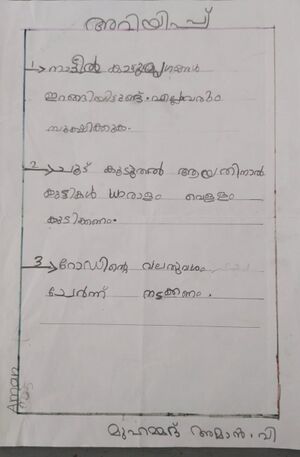 അറിയിപ്പ്
1 നാട്ടിൽ കാട്ടുമൃഗങ്ങൾ
ഇറങ്ങിയിട്ടുണ്ട്. എല്ലാവരും
സൂക്ഷിക്കുക.
2 ചൂട് കൂടുതൽ ആയതിനാൽ
കുട്ടികൾ ധാരാളം വെള്ളം
കുടിക്കണം.
3 റോഡിന്റെ വലതുവശം
ചേർന്ന് നടക്കണം.
Aman
മുഹമ്മദ് അമാൻ. വി